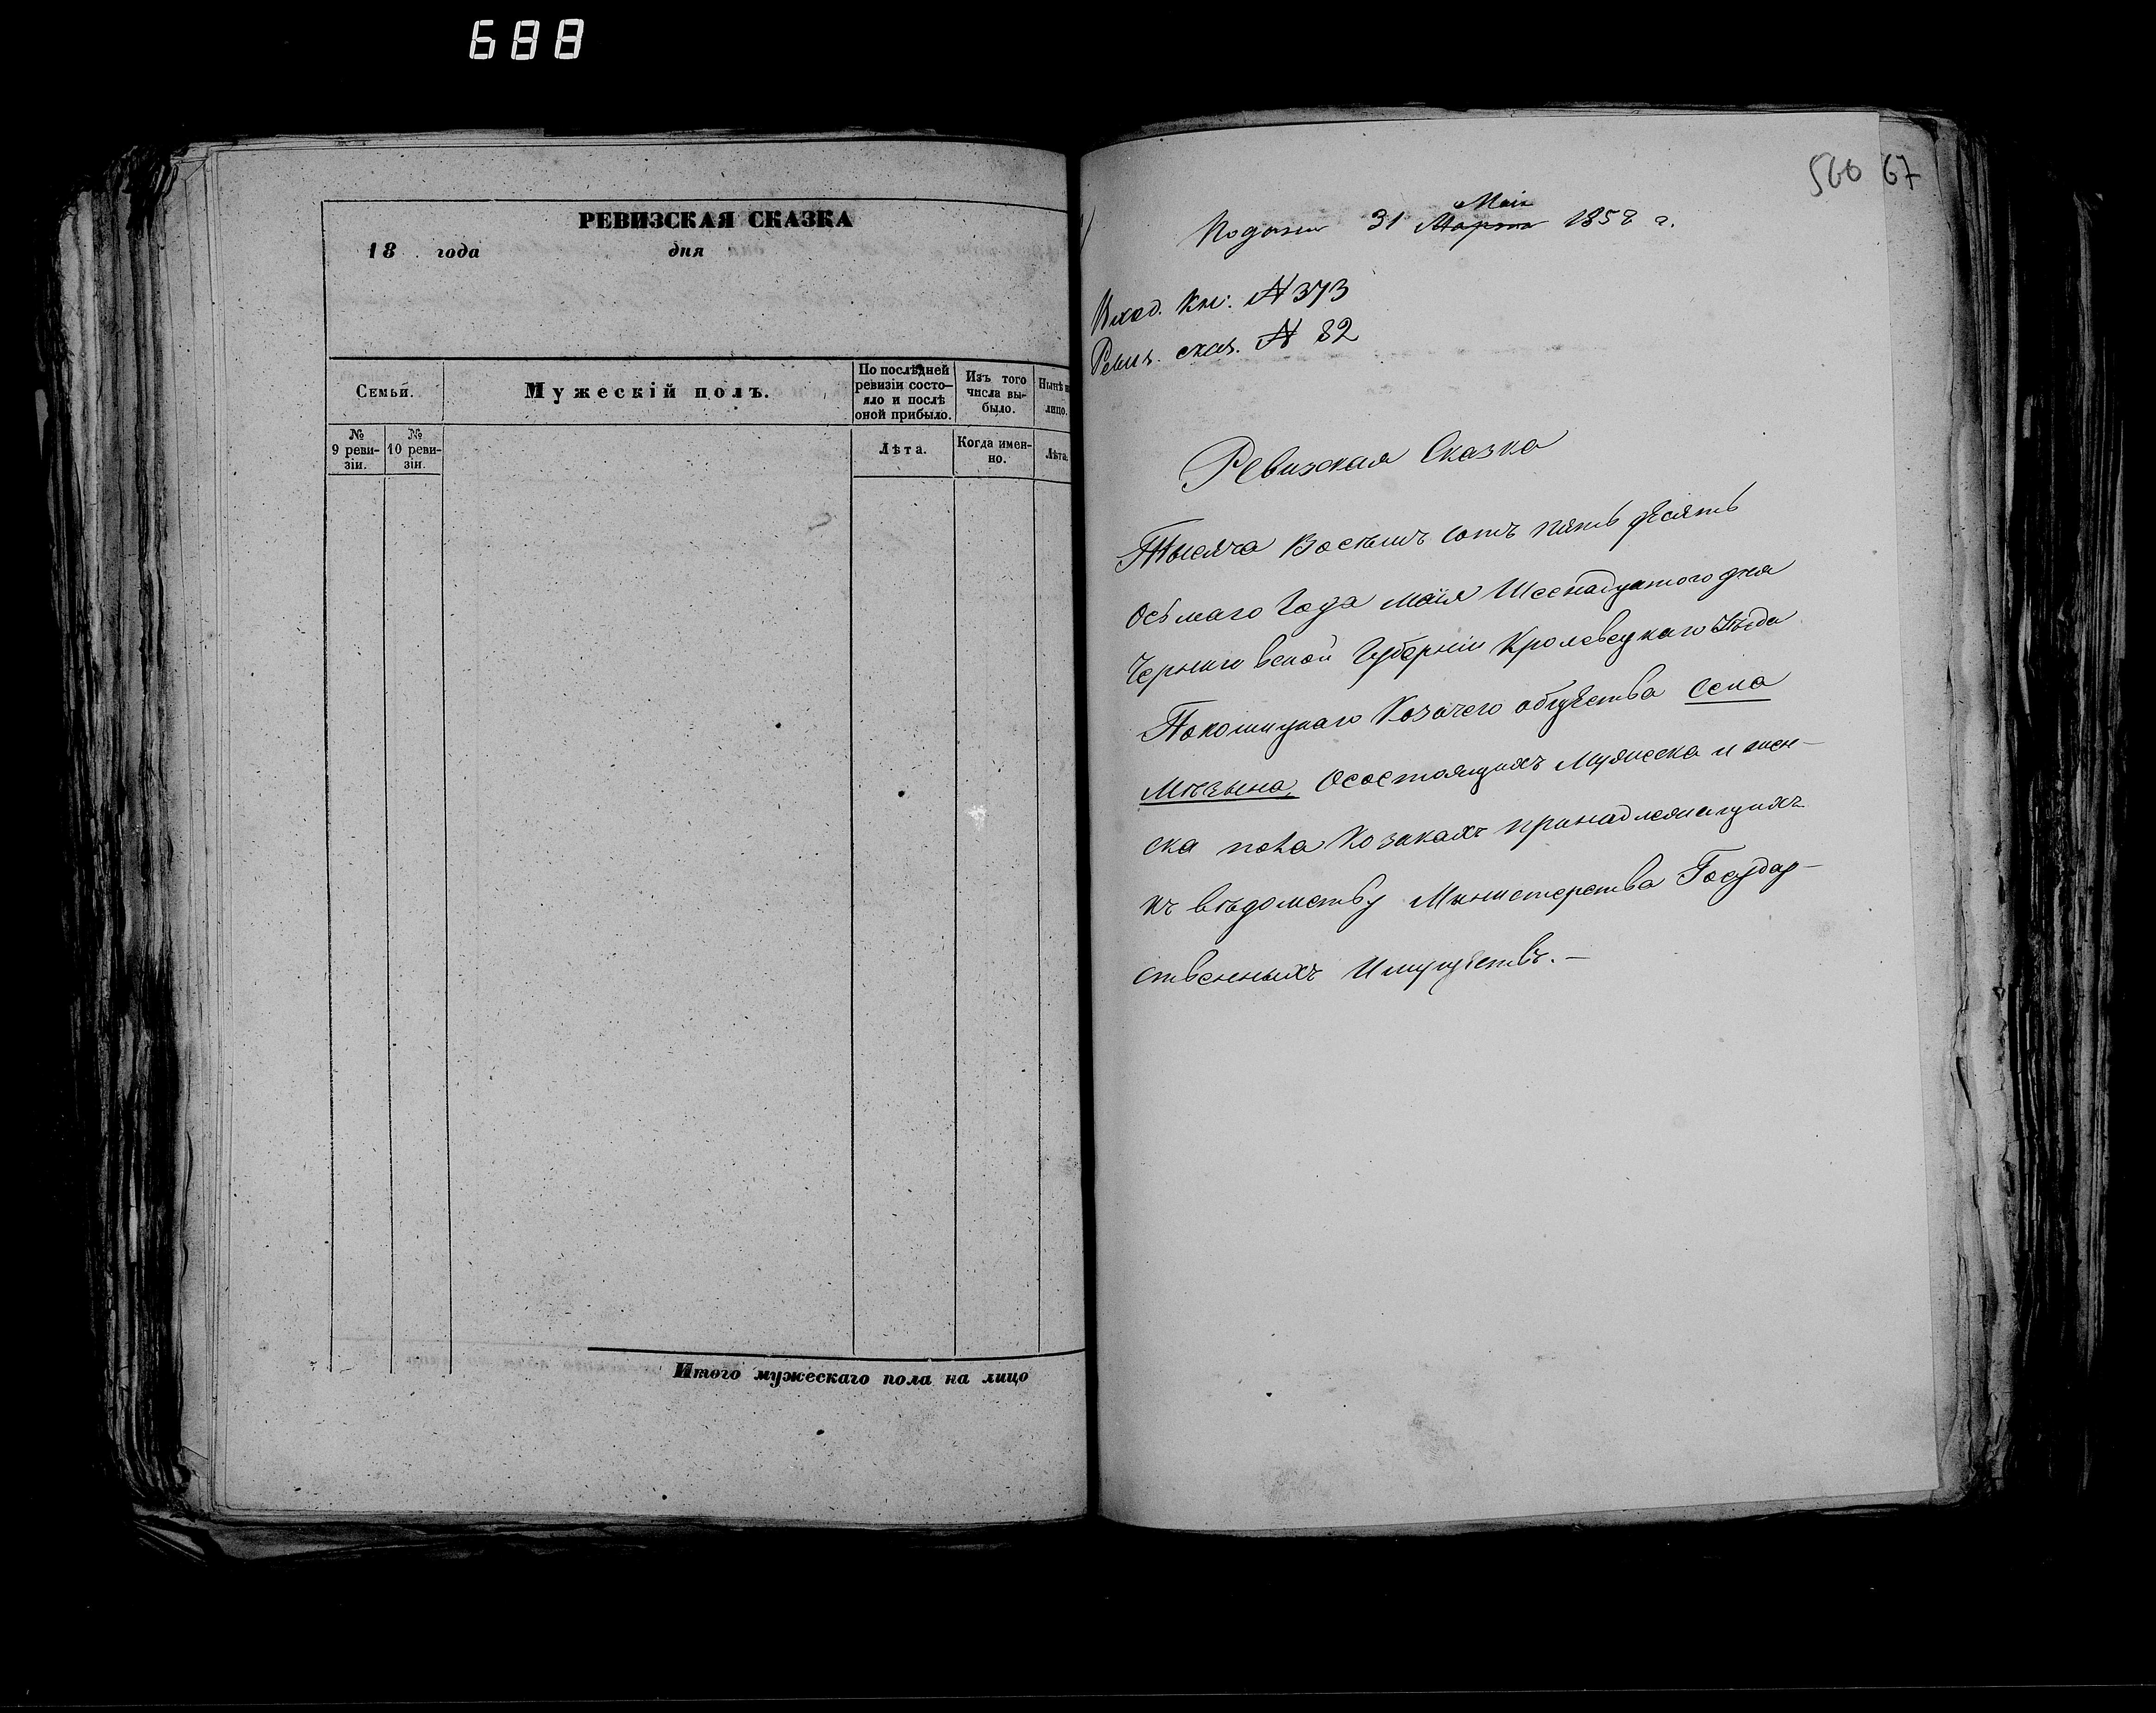 688
РЕВИЗСКАЯ СКАЗКА
18 года дня
Семьи.
Мужескій полъ.
По послѣдней ревизіи состо-
яло и послѣ
оной прибыло.
Изъ того
числа вы-
было.
Нынѣ н
лицо.
№
9 реви-
зіи.
№
10 реви-
зіи.
Лѣта.
Когда имен-
но.
Лѣта.
Итого мужескаго пола на лицо
566 67
Маія
Подана 31 Марта 1858 г.
Вход. Кн: № 373
Ревиз. сказ. № 82
Ревизская Сказка
Тысяча Восемъ сотъ пять десятъ
Осьмаго Года маія Шеснадцатого дня
Черниговской Губерніи Кролевецкаго Уѣзда
Покошицкаго Козачего общества Села
Мезына, О состоящихъ Мужеска и жен-
ска пола Козакахъ принадлежащихъ
къ вѣдомству Министерства Государ-
ственныхъ Имуществъ.-